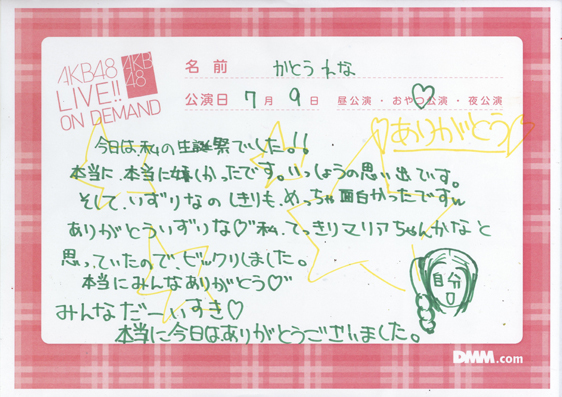 AKB48
LIVE!!
ON DEMAND
AKB
48
名前 かとうれな
公演日 7月 9日 昼公演・おやつ公演・夜公演
ありがとう
今日は、私の生誕祭でした!!
本当に、本当に嬉しかったです。いっしょうの思い出です。
そして、いずりなのしきりも、めっちゃ面白かったですw
ありがとういずりな♡私、てっきりマリアちゃんかなと
思っていたので、ビックリしました。
本当にみんなありがとう♡
みんなだーいすき♡
本当に今日はありがとうございました。
自分
DMM.com